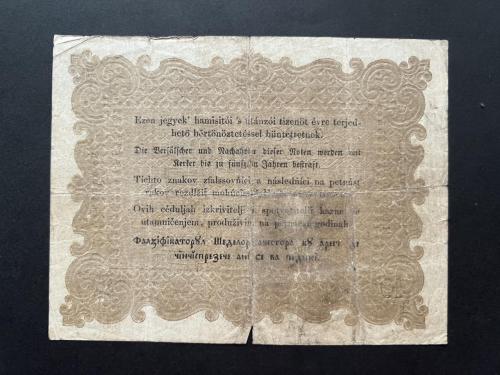 Ezen jegyek' hamisitói 's utánzói tizenöt évre terjed-
hető börtönöztetéssel büntettetnek.
Die Verfälscher und Nachahmer dieser Noten werden mit
Kerker bis zu fünfzehn Jahren bestraft.
Tíchto znakov zfalssovňíci a následňíci na petnást
rokov
Ovih céduljah izkrivitelji i kazne
utamničenjem, produživim, na petnaest godinah
Фалзіфікаторꙋл Шеделор ачестора кꙋ арест де
чінчіспрезече ані се ва педепсі.